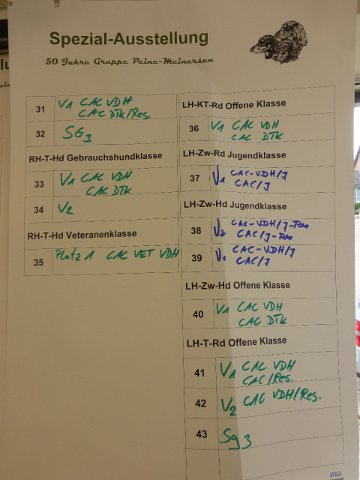 Spezial-Ausstellung
50 Jahre Gruppe Peine-Meinersen
31 V1 CAC VDH
CAC DTK/Res.
32 SG3
RH-T-Hd Gebrauchshundklasse
33 V1 CAC VDH
CAC DTK
34 V2
RH-T-Hd Veteranenklasse
35 Platz 1 CAC VET VDH
LH-KT-Rd Offene Klasse
36 V1 CAC VDH
CAC DTK
LH-Zw-Rd Jugendklasse
37 V1 CAC-VDH/J
CAC/J
LH-Zw-Hd Jugendklasse
38 V2 CAC-VDH/J-Res
CAC/J-Res
39 V1 CAC-VDH/J
CAC/J
LH-Zw-Hd Offene Klasse
40 V1 CAC VDH
CAC DTK
LH-T-Rd Offene Klasse
41 V1 CAC VDH
CAC/Res.
42 V2 CAC VDH/Res.
43 Sg3